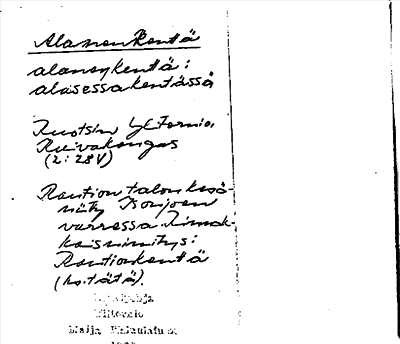 Alanen Kenttä
alaneŋkenttä:
alasessakentässä
Ruotsin Yl.Tornio,
Kuivakangas
(2:28V)
Raution talon kesä-
Tornjoen
varressa. Rinnak-
kaisnimitys:
Rautionkenttä
(ks. tätä).
Ylitornio
Maija